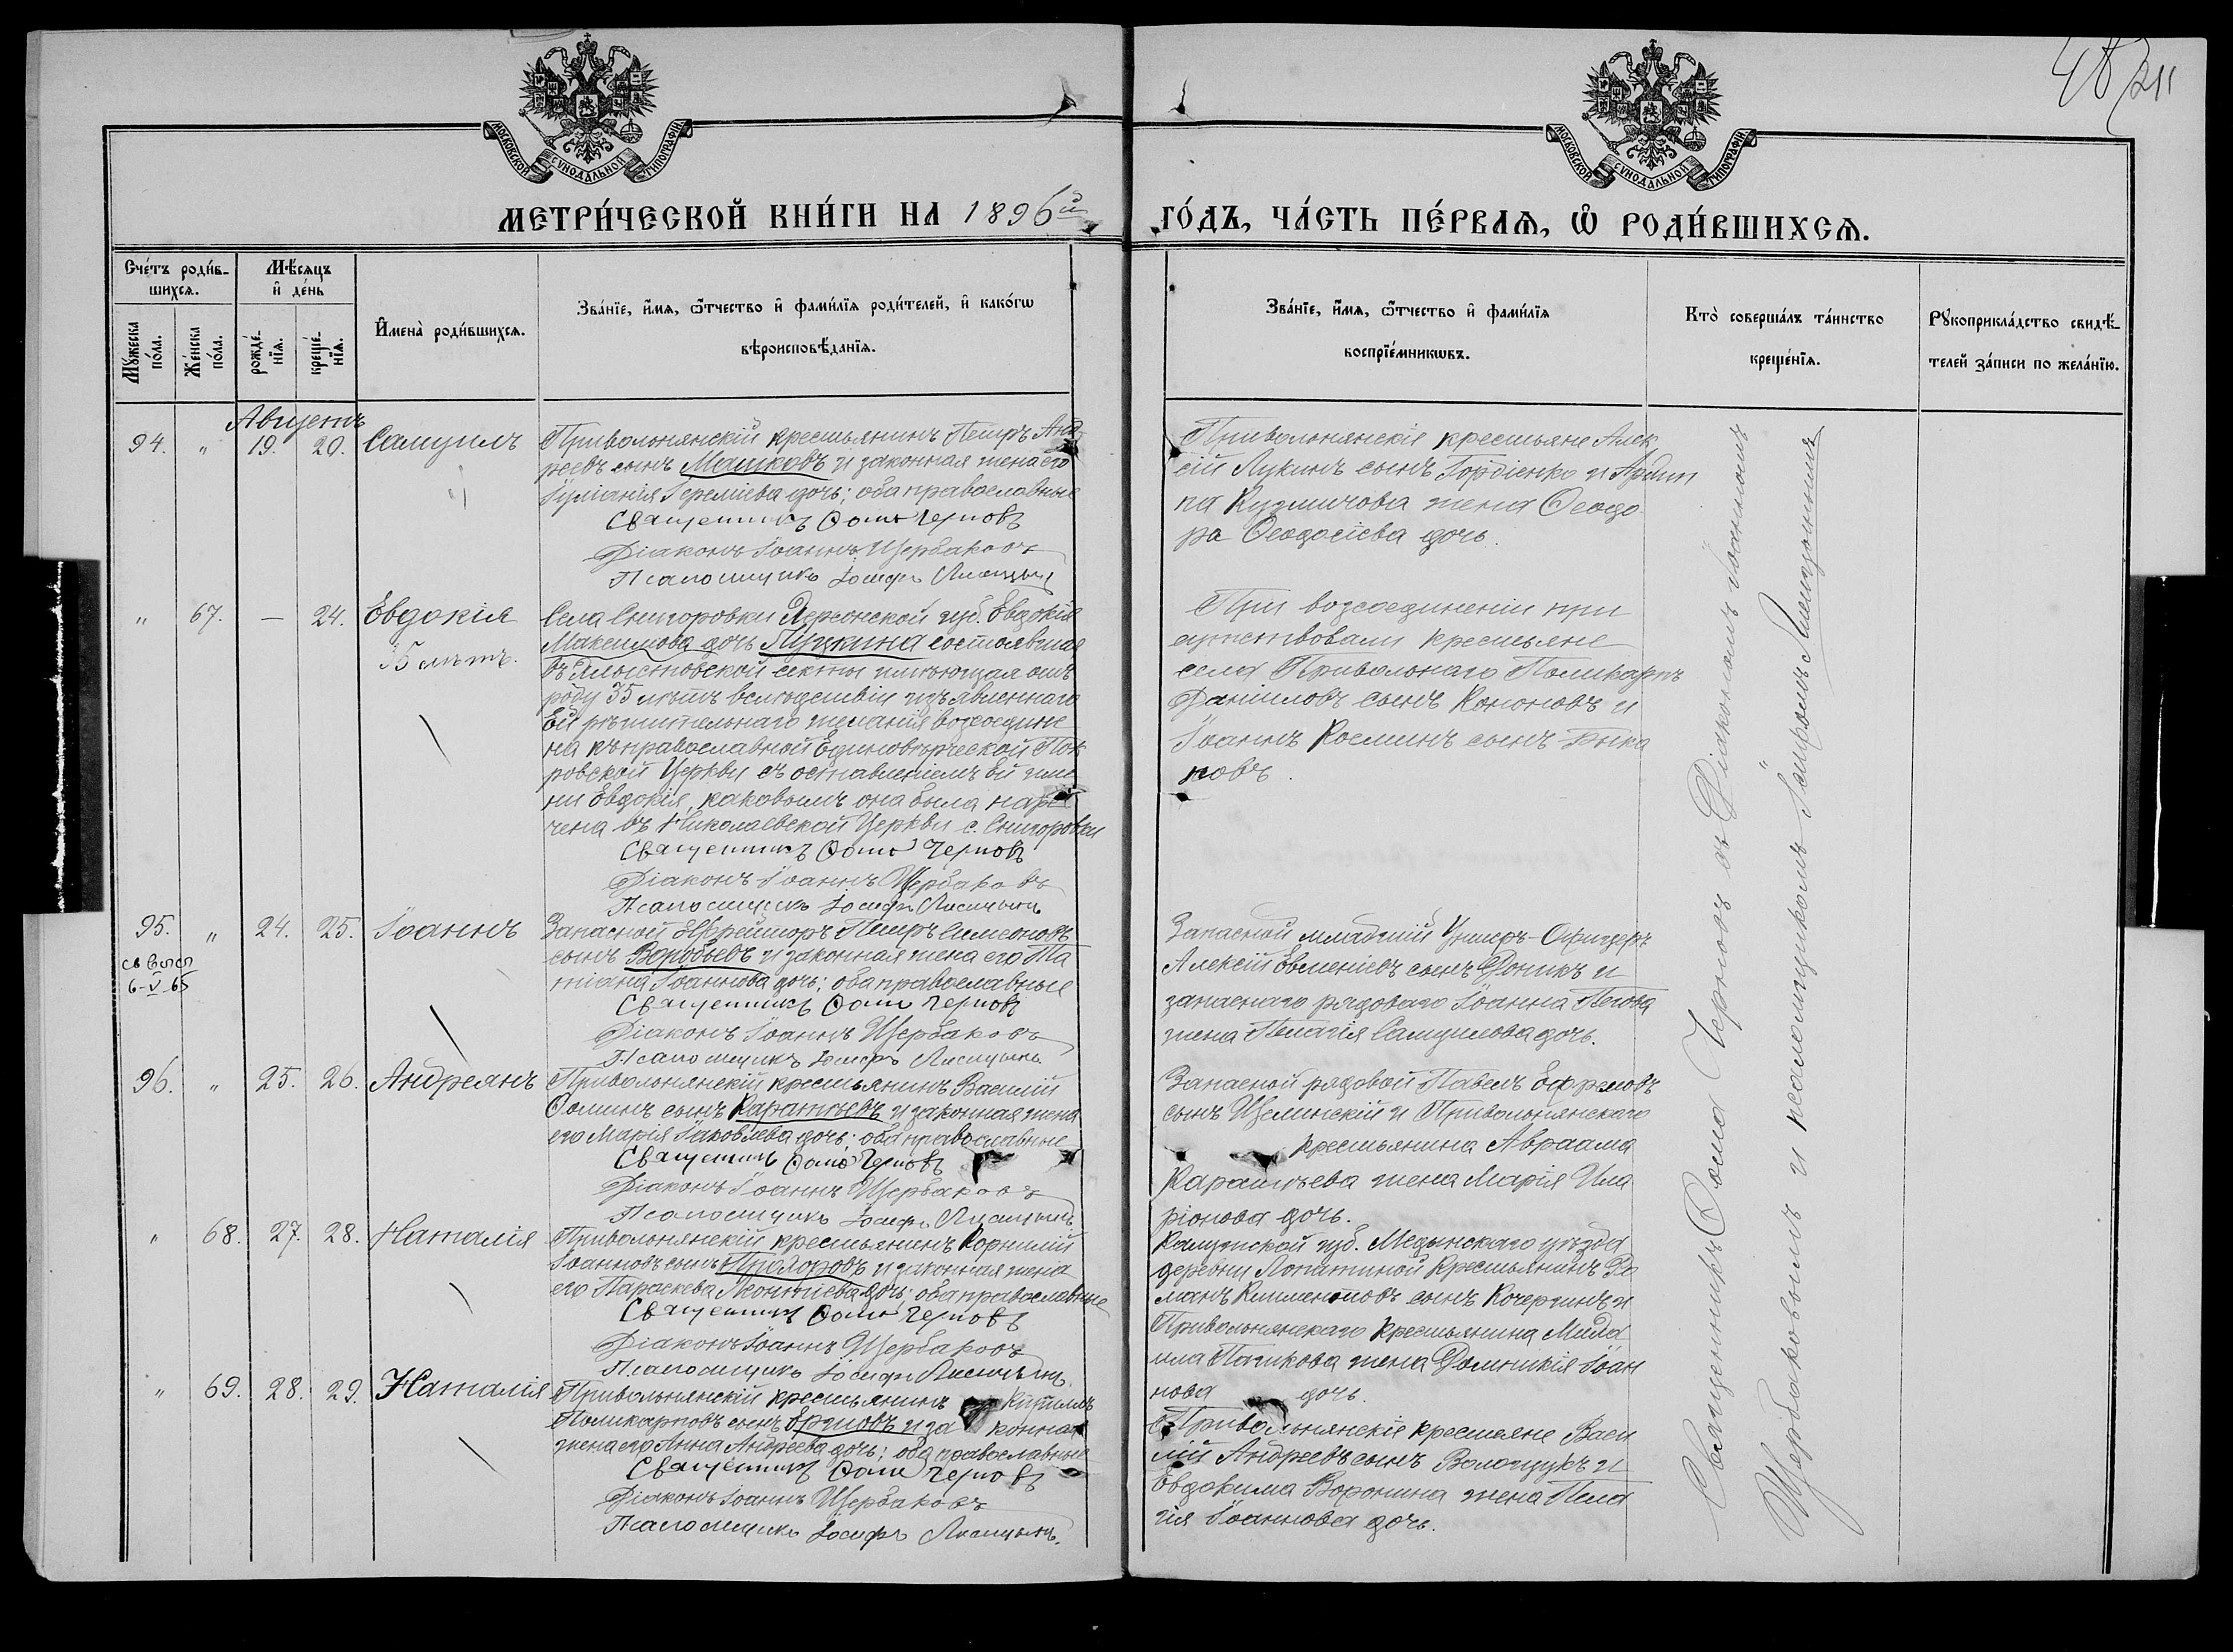 48
211
МОСКОВСКОЙ СѴНОДАЛЬНОЙ ТИПОГРАФІИ
МОСКОВСКОЙ СѴНОДАЛЬНОЙ ТИПОГРАФІИ
МЕТРИ́ЧЕСКОЙ КНИ́ГИ НА 1896й
ГО́ДЪ, ЧА́СТЬ ПЕ́РВАѦ, Ѡ҆ РОДИ́ВШИХСѦ.
Сче́тъ роди́в-
шихсѧ.
Мѣ́сѧцъ
и҆ де́нь
Мꙋ́жеска по́ла.
Же́нска по́ла.
рожде́-
нїѧ.
креще́-
нїѧ.
И҆мена̀ роди́вшихсѧ.
Зва́нїе, и҆́мѧ, ѻ҆́тчество и҆ фами́лїѧ роди́телей, и҆ како́гѡ
вѣроисповѣ́данїѧ.
Зва́нїе, и҆́мѧ, ѻ҆́тчество и҆ фами́лїѧ
воспрїе́мникѡвъ.
Кто̀ соверша́лъ та́инство
креще́нїѧ.
Рꙋкоприкла́дство свидѣ́-
телей за́писи по жела́нїю.
Августъ
94. " 19. 20. Самуилъ
Привольнянскій крестьянинъ Петръ Анд
реевъ сынъ Машковъ и законная жена его
Іуліанія Іереміева дочь; оба православные
Священникъ Ѳома Черновъ
Діаконъ Іоаннъ Щербаковъ
Псаломщикъ Іосифъ Лисицынъ
Привольнянскіе крестьяне Алек
сій Лукинъ сынъ Гордіенко и
Кузмичова жена Ѳеодо
ра Ѳеодосіева дочь.
" 67. — 24. Евдокія
35 лѣтъ.
Села Снигоровки Херсонской губ. Евдокія
Максимова дочь состоявшая
въ Хлыстовской секты имѣющая отъ
роду 35 лѣтъ вслѣдствіи изъявленнаго
Ей рѣшительнаго желанія возсоедине
на къ православной Единовѣрческой Пок
ровской Церкви съ оставленіемъ ей име
ни Евдокія, каковымъ она была наре
чена въ Николаевской Церкви с. Снигоровки
Священникъ Ѳома Черновъ
Діаконъ Іоаннъ Щербаковъ
Псаломщикъ Іосифъ Лисицынъ
При возсоединеніи при
сутствовали крестьяне
села Привольнаго Поликарпъ
Даніиловъ сынъ Кононовъ и
Іоаннъ Косминъ сынъ
ковъ.
95. " 24. 25. Іоаннъ
6-V-65
Запасной Ефрейторъ Петръ Симеоновъ
сынъ Воробьевъ и законная жена его Та
тіана Іоаннова дочь; оба православные
Священникъ Ѳома Черновъ
Діаконъ Іоаннъ Щербаковъ
Псаломщикъ Іосифъ Лисицынъ
Запасной младшій Унтеръ-Офицеръ
Алексій Евменіевъ сынъ Доникъ и
запаснаго рядоваго Іоанна
жена Пелагія Самуилова дочь.
96. " 25. 26. Андреянъ
Привольнянскій крестьянинъ Василій
Ѳоминъ сынъ Каратѣевъ и законная жена
его Марія Іаковлева дочь; оба православные
Священникъ Ѳома Черновъ
Діаконъ Іоаннъ Щербаковъ
Псаломщикъ Іосифъ Лисицынъ
Запасной рядовой Павелъ Ефремовъ
сынъ Щелинскій и Привольнянскаго
крестьянина Авраама
Каратѣева жена Марія Ила
ріонова дочь.
" 68. 27. 28. Наталія
Привольнянскій крестьянинъ Корнилій
Іоанновъ сынъ Прохоровъ и законная жена
его Параскева Леонтіева дочь; оба православные
Священникъ Ѳома Черновъ
Діаконъ Іоаннъ Щербаковъ
Псаломщикъ Іосифъ Лисицынъ
Калужской губ. Медынскаго уѣзда
деревни Лопатиной Крестьянинъ Ро
манъ сынъ Кочергинъ и
Привольнянскаго крестьянина Миха
ила Пашкова жена Домникія Іоан
нова дочь.
" 69. 28. 29. Наталія
Привольнянскій крестьянинъ Кириллъ
Поликарповъ сынъ и законная
жена его Анна Андреева дочь; оба православные
Священникъ Ѳома Черновъ
Діаконъ Іоаннъ Щербаковъ
Псаломщикъ Іосифъ Лисицынъ.
Привольнянскіе крестьяне Васи
лій Андреевъ сынъ Волощукъ и
Евдокима Воронина жена Пела
гія Іоаннова дочь.
Священникъ Ѳома Черновъ съ Діакономъ Іоанномъ
Щербаковымъ и псаломщикомъ Іосифомъ Лисицынымъ